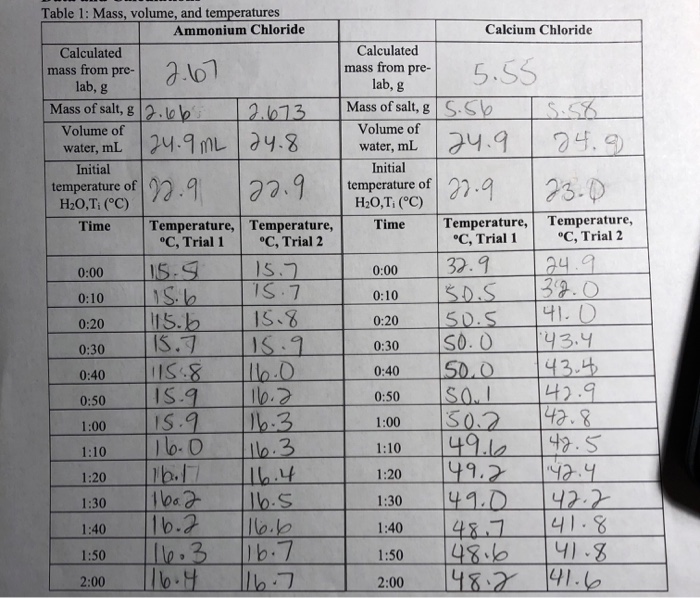 Table 1: Mass, volume, and temperatures
Ammonium Chloride Calcium Chloride
Calculated mass from pre-lab, g 2.67 Calculated mass from pre-lab, g 5.55
Mass of salt, g 2.66 2.673 Mass of salt, g 5.56 5.58
Volume of water, mL 24.9 mL 24.8 Volume of water, mL 24.9 24.9
Initial temperature of H₂O,Tᵢ (°C) 22.9 22.9 Initial temperature of H₂O,Tᵢ (°C) 22.9 23.0
Time Temperature, °C, Trial 1 Temperature, °C, Trial 2 Time Temperature, °C, Trial 1 Temperature, °C, Trial 2
0:00 15.5 15.7 0:00 32.9 24.9
0:10 15.6 15.7 0:10 50.5 38.0
0:20 15.6 15.8 0:20 50.5 41.0
0:30 15.7 15.9 0:30 50.0 43.4
0:40 15.8 16.0 0:40 50.0 43.4
0:50 15.9 16.2 0:50 50.1 42.9
1:00 15.9 16.3 1:00 50.2 42.8
1:10 16.0 16.3 1:10 49.6 42.5
1:20 16.1 16.4 1:20 49.2 42.4
1:30 16.2 16.5 1:30 49.0 42.2
1:40 16.2 16.6 1:40 48.7 41.8
1:50 16.3 16.7 1:50 48.6 41.8
2:00 16.4 16.7 2:00 48.2 41.6